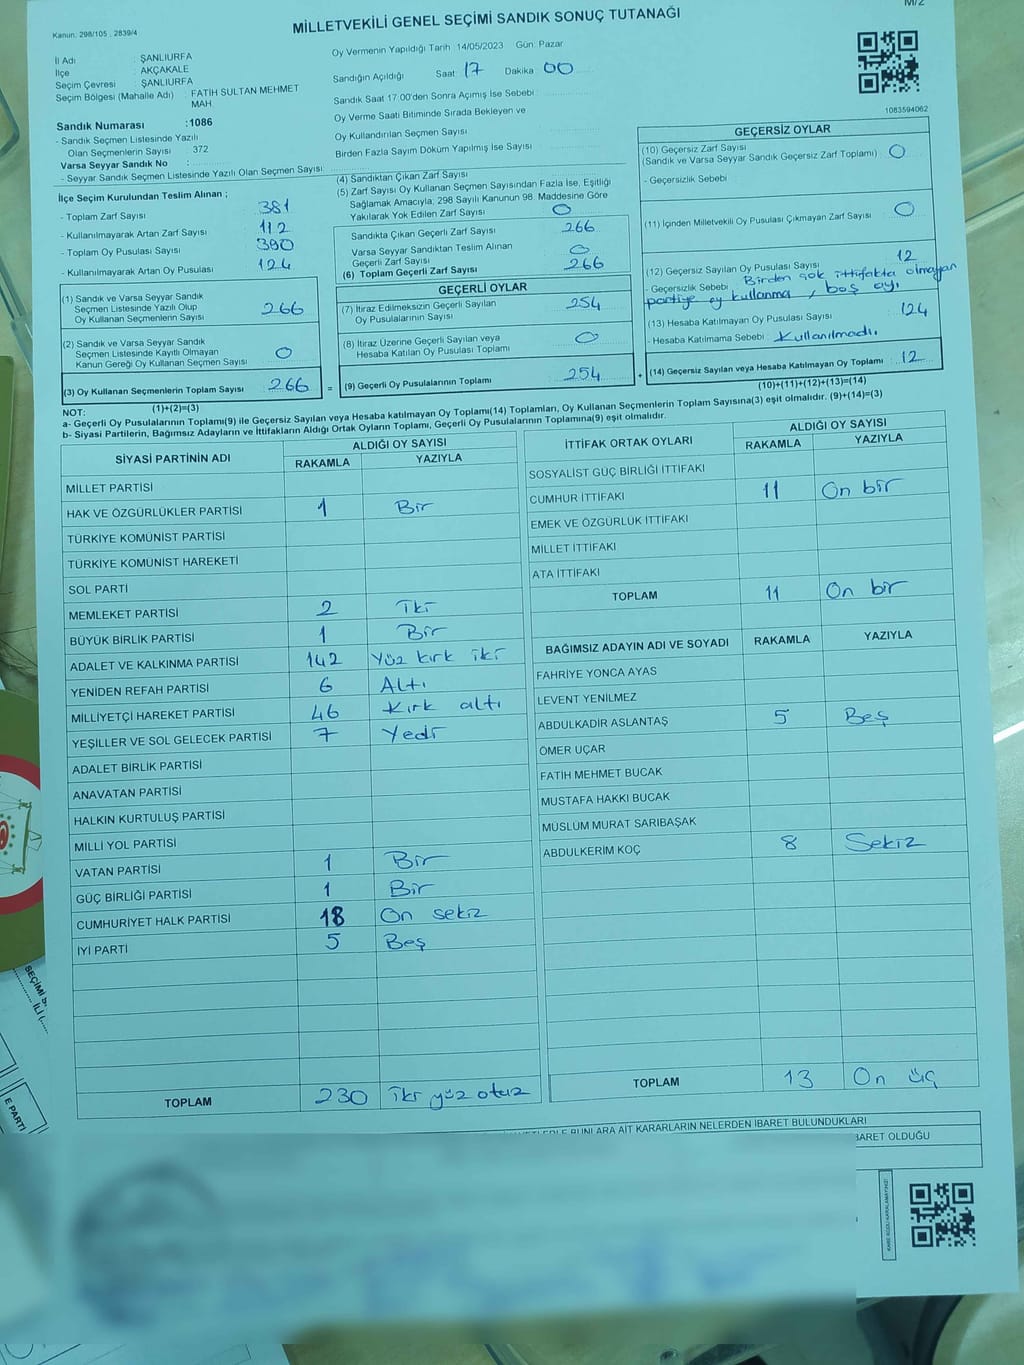 M/2
Kanun: 298/105 , 2839/4
MİLLETVEKİLİ GENEL SEÇİMİ SANDIK SONUÇ TUTANAĞI
İl Adı : ŞANLIURFA
İlçe : AKÇAKALE
Seçim Çevresi : ŞANLIURFA
Seçim Bölgesi (Mahalle Adı) : FATİH SULTAN MEHMET
MAH.
Sandık Numarası :1086
- Sandık Seçmen Listesinde Yazılı
Olan Seçmenlerin Sayısı : 372
Varsa Seyyar Sandık No :
- Seyyar Sandık Seçmen Listesinde Yazılı Olan Seçmen Sayısı :
Oy Vermenin Yapıldığı Tarih :14/05/2023 Gün: Pazar
Sandığın Açıldığı Saat: 17 Dakika 00
Sandık Saat 17:00'den Sonra Açımış İse Sebebi :
Oy Verme Saati Bitiminde Sırada Bekleyen ve
Oy Kullandırılan Seçmen Sayısı
Birden Fazla Sayım Döküm Yapılmış İse Sayısı
1083594062
İlçe Seçim Kurulundan Teslim Alınan ;
- Toplam Zarf Sayısı 381
- Kullanılmayarak Artan Zarf Sayısı 112
- Toplam Oy Pusulası Sayısı 390
- Kullanılmayarak Artan Oy Pusulası 124
(1) Sandık ve Varsa Seyyar Sandık
Seçmen Listesinde Yazılı Olup
Oy Kullanan Seçmenlerin Sayısı 266
(2) Sandık ve Varsa Seyyar Sandık
Seçmen Listesinde Kayıtlı Olmayan
Kanun Gereği Oy Kullanan Seçmen Sayısı 0
(3) Oy Kullanan Seçmenlerin Toplam Sayısı 266 =
(1)+(2)=(3)
(4) Sandıktan Çıkan Zarf Sayısı
(5) Zarf Sayısı Oy Kullanan Seçmen Sayısından Fazla İse, Eşitliği
Sağlamak Amacıyla; 298 Sayılı Kanunun 98. Maddesine Göre
Yakılarak Yok Edilen Zarf Sayısı 0
Sandıkta Çıkan Geçerli Zarf Sayısı 266
Varsa Seyyar Sandıktan Teslim Alınan
Geçerli Zarf Sayısı 0
(6) Toplam Geçerli Zarf Sayısı 266
GEÇERLİ OYLAR
(7) İtiraz Edilmeksizin Geçerli Sayılan
Oy Pusulalarının Sayısı 254
(8) İtiraz Üzerine Geçerli Sayılan veya
Hesaba Katılan Oy Pusulası Toplamı 0
(9) Geçerli Oy Pusulalarının Toplamı 254 +
GEÇERSİZ OYLAR
(10) Geçersiz Zarf Sayısı
(Sandık ve Varsa Seyyar Sandık Geçersiz Zarf Toplamı) 0
- Geçersizlik Sebebi
(11) İçinden Milletvekili Oy Pusulası Çıkmayan Zarf Sayısı 0
(12) Geçersiz Sayılan Oy Pusulası Sayısı 12
- Geçersizlik Sebebi Birden çok ittifakta olmayan
partiye oy kullanma, boş oy.
(13) Hesaba Katılmayan Oy Pusulası Sayısı 124
- Hesaba Katılmama Sebebi : Kullanılmadı.
(14) Geçersiz Sayılan veya Hesaba Katılmayan Oy Toplamı 12
(10)+(11)+(12)+(13)=(14)
NOT:
a- Geçerli Oy Pusulalarının Toplamı(9) ile Geçersiz Sayılan veya Hesaba katılmayan Oy Toplamı(14) Toplamları, Oy Kullanan Seçmenlerin Toplam Sayısına(3) eşit olmalıdır. (9)+(14)=(3)
b- Siyasi Partilerin, Bağımsız Adayların ve İttifakların Aldığı Ortak Oyların Toplamı, Geçerli Oy Pusulalarının Toplamına(9) eşit olmalıdır.
SİYASİ PARTİNİN ADI
ALDIĞI OY SAYISI
RAKAMLA YAZIYLA
MİLLET PARTİSİ
HAK VE ÖZGÜRLÜKLER PARTİSİ 1 Bir
TÜRKİYE KOMÜNİST PARTİSİ
TÜRKİYE KOMÜNİST HAREKETİ
SOL PARTİ
MEMLEKET PARTİSİ 2 İki
BÜYÜK BİRLİK PARTİSİ 1 Bir
ADALET VE KALKINMA PARTİSİ 142 Yüz kırk iki
YENİDEN REFAH PARTİSİ 6 Altı
MİLLİYETÇİ HAREKET PARTİSİ 46 Kırk altı
YEŞİLLER VE SOL GELECEK PARTİSİ 7 Yedi
ADALET BİRLİK PARTİSİ
ANAVATAN PARTİSİ
HALKIN KURTULUŞ PARTİSİ
MİLLİ YOL PARTİSİ
VATAN PARTİSİ 1 Bir
GÜÇ BİRLİĞİ PARTİSİ 1 Bir
CUMHURİYET HALK PARTİSİ 18 On sekiz
İYİ PARTİ 5 Beş
TOPLAM 230 İki yüz otuz
İTTİFAK ORTAK OYLARI
ALDIĞI OY SAYISI
RAKAMLA YAZIYLA
SOSYALİST GÜÇ BİRLİĞİ İTTİFAKI
CUMHUR İTTİFAKI 11 On bir
EMEK VE ÖZGÜRLÜK İTTİFAKI
MİLLET İTTİFAKI
ATA İTTİFAKI
TOPLAM 11 On bir
BAĞIMSIZ ADAYIN ADI VE SOYADI RAKAMLA YAZIYLA
FAHRİYE YONCA AYAS
LEVENT YENİLMEZ
ABDULKADİR ASLANTAŞ 5 Beş
ÖMER UÇAR
FATİH MEHMET BUCAK
MUSTAFA HAKKI BUCAK
MÜSLÜM MURAT SARIBAŞAK
ABDULKERİM KOÇ 8 Sekiz
TOPLAM 13 On üç
BUNLARA AİT KARARLARIN NELERDEN İBARET BULUNDUKLARI
İBARET OLDUĞU
SEÇİMİ S
İLİ (
E PARTİ